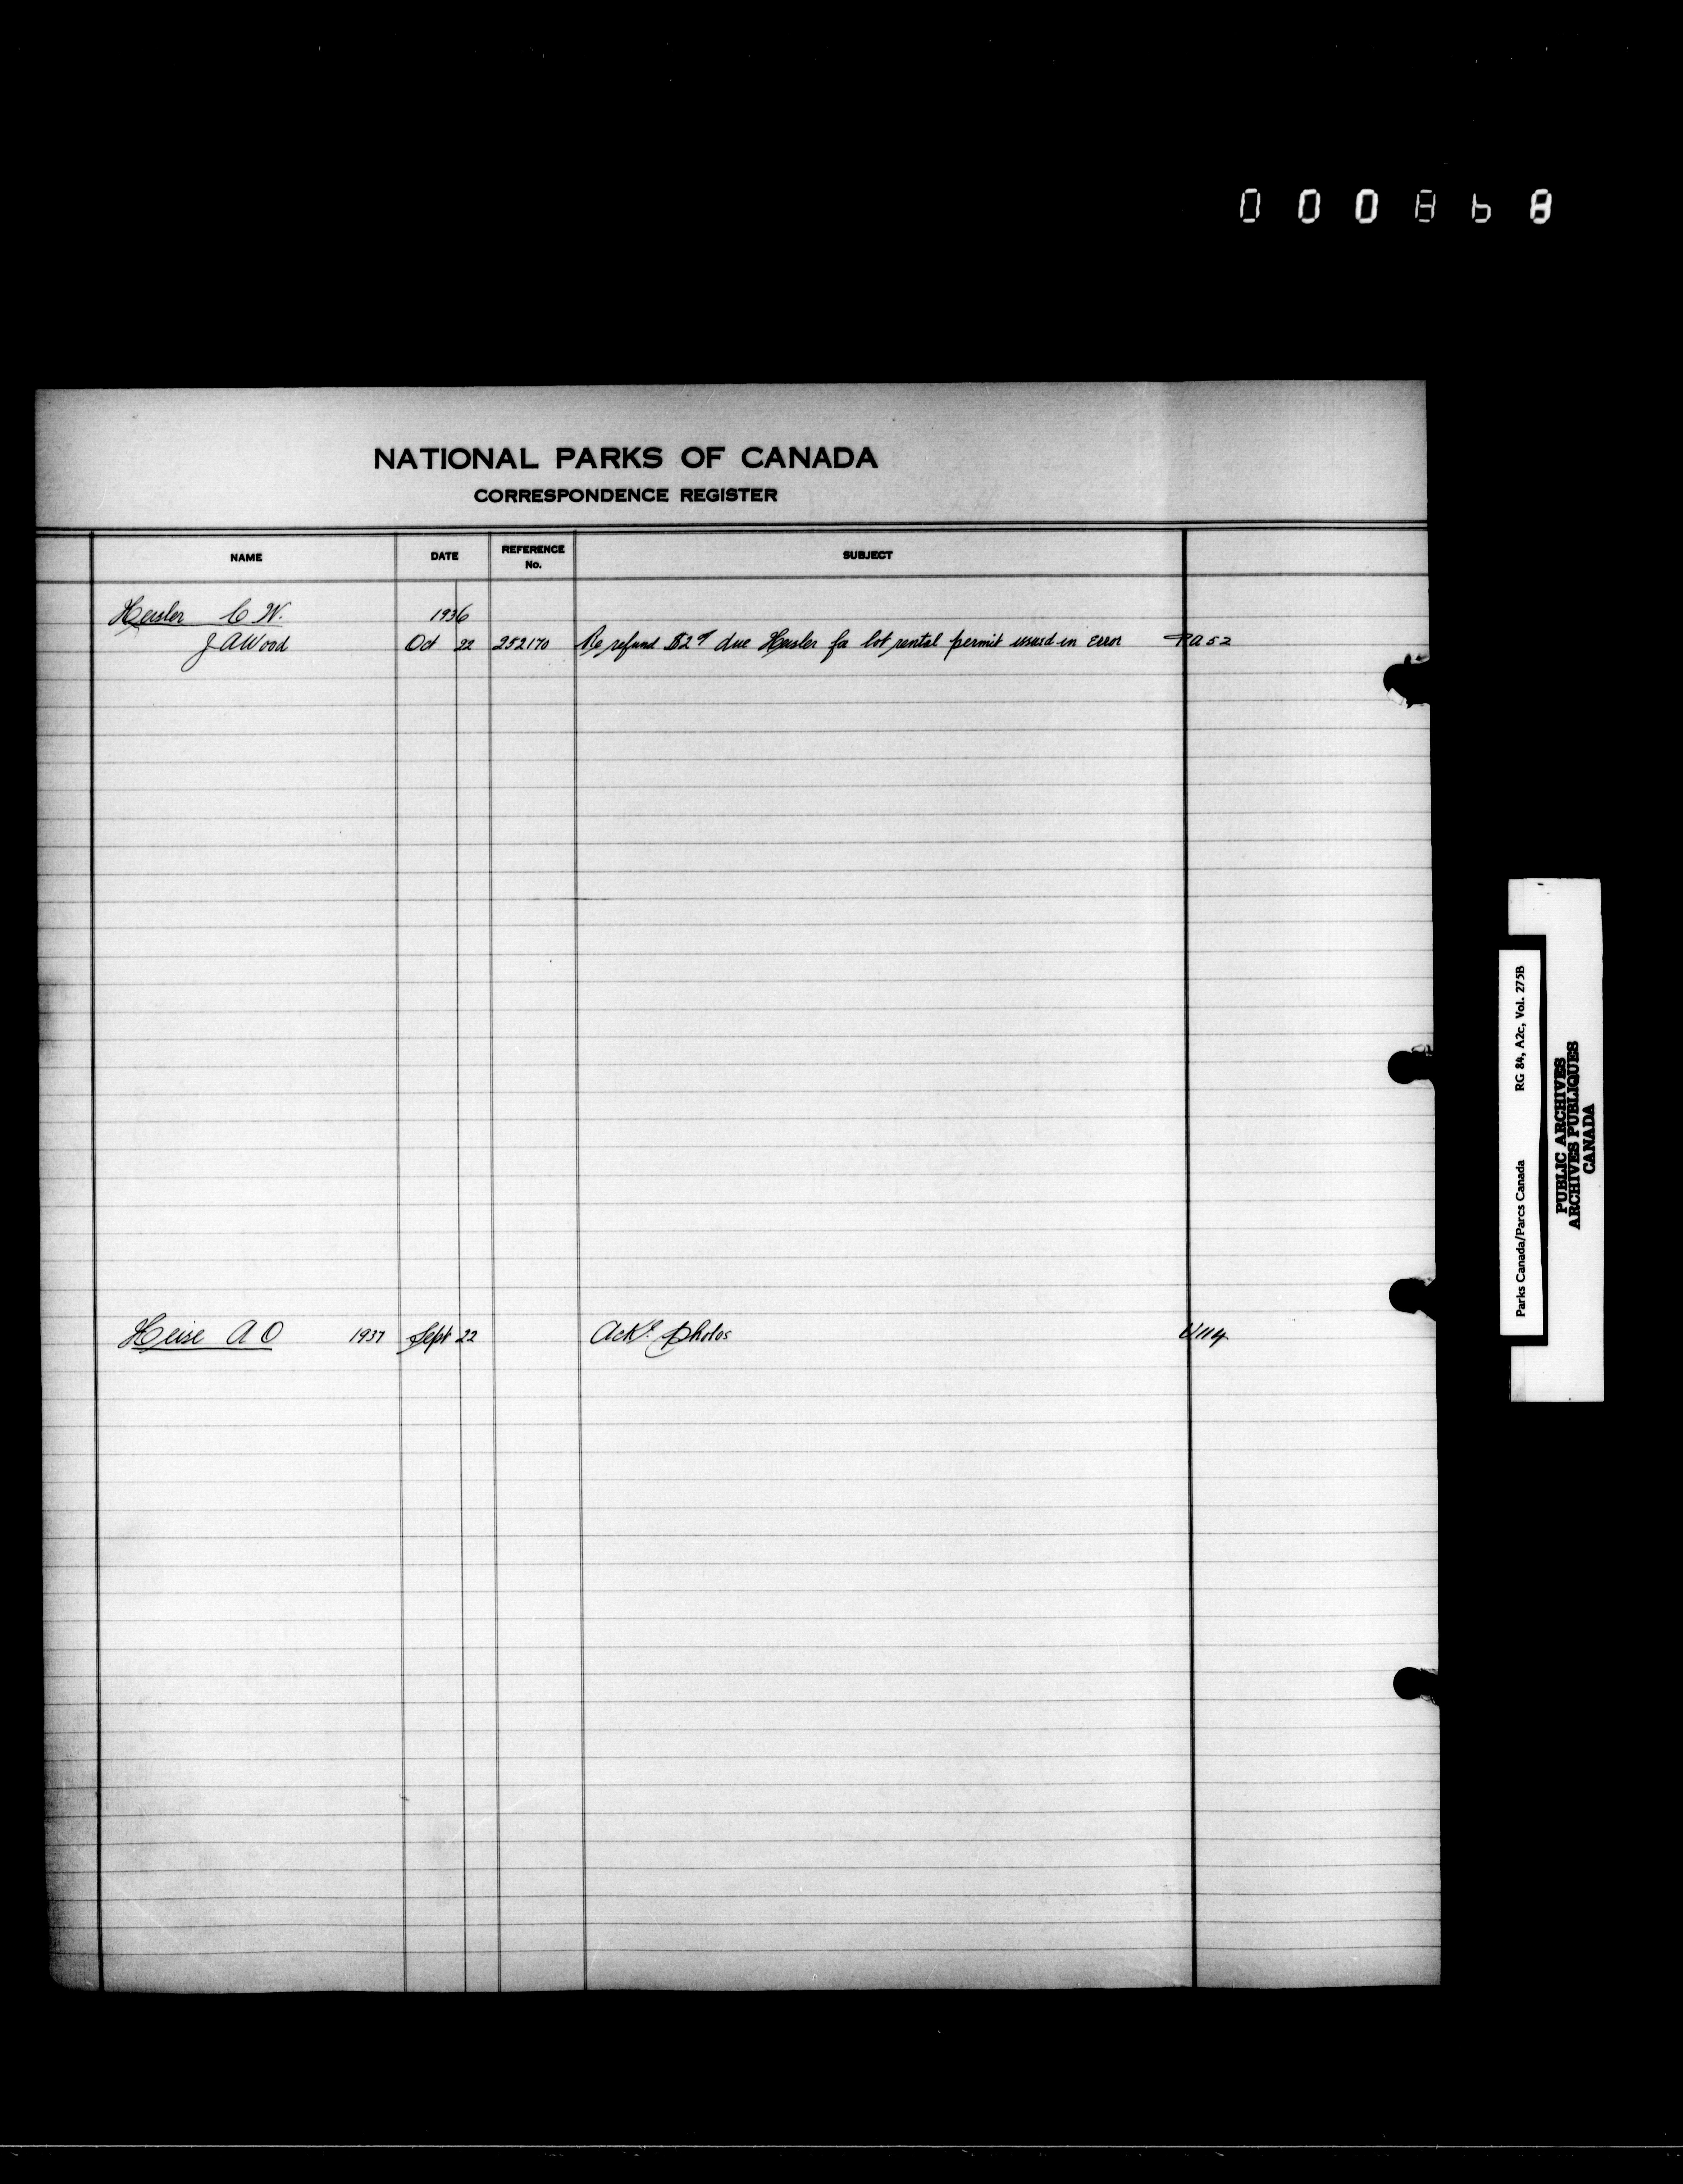 0 0 0 8 6 8
NATIONAL PARKS OF CANADA
CORRESPONDENCE REGISTER
NAME DATE REFERENCE No. SUBJECT
Heisler C W. 1936
J A Wood Oct 22 252170 Re refund $2 due Heisler for lot rental permit issued in error PA 52
Heise A O 1937 Sept 22 Ack. Photos U114
Parks Canada/Parcs Canada RG 84, A2c, Vol. 275B
PUBLIC ARCHIVES
ARCHIVES PUBLIQUES
CANADA